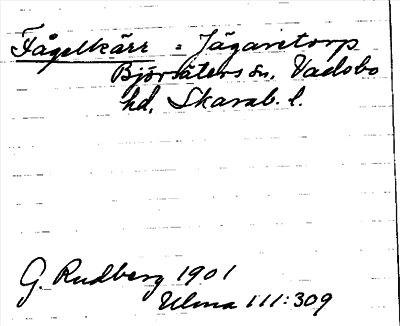 Fågelkärr = Jägaretorp
Björsäters sn, Vadsbo
hd, Skarab. l.
G. Rudberg 1901
Ulma 111:309